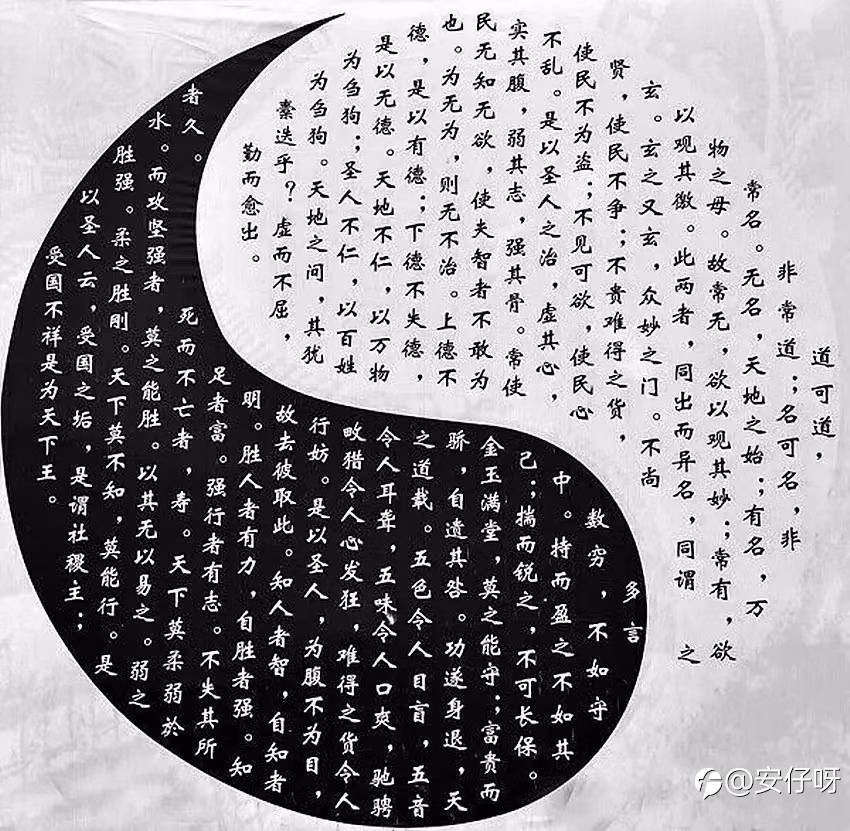 道可道，
非常道；名可名，非
常名。无名，天地之始；有名，万
物之母。故常无，欲以观其妙；常有，欲
以观其徼。此两者，同出而异名，同谓 之
玄。玄之又玄，众妙之门。不尚
贤，使民不争；不贵难得之货，
使民不为盗；不见可欲，使民心
不乱。是以圣人之治，虚其心，
实其腹，弱其志，强其骨。常使
民无知无欲，使夫智者不敢为
也。为无为，则无不治。上德不
德，是以有德；下德不失德，
是以无德。天地不仁，以万物
为刍狗；圣人不仁，以百姓
为刍狗。天地之间，其犹
橐迭乎？虚而不屈，
勤而愈出。
多言
数穷，不如守
中。持而盈之不如其
己；揣而锐之，不可长保。
金玉满堂，莫之能守；富贵而
骄，自遗其咎。功遂身退，天
之道载。五色令人目盲，五音
令人耳聋，五味令人口爽，驰骋
畋猎令人心发狂，难得之货令人
行妨。是以圣人，为腹不为目，
故去彼取此。知人者智，自知者
明。胜人者有力，自胜者强。知
足者富。强行者有志。不失其所
者久。 死而不亡者，寿。天下莫柔弱於
水。而攻坚强者，莫之能胜。以其无以易之。弱之
胜强。柔之胜刚。天下莫不知，莫能行。是
以圣人云，受国之垢，是谓社稷主；
受国不祥是为天下王。
@安仔呀